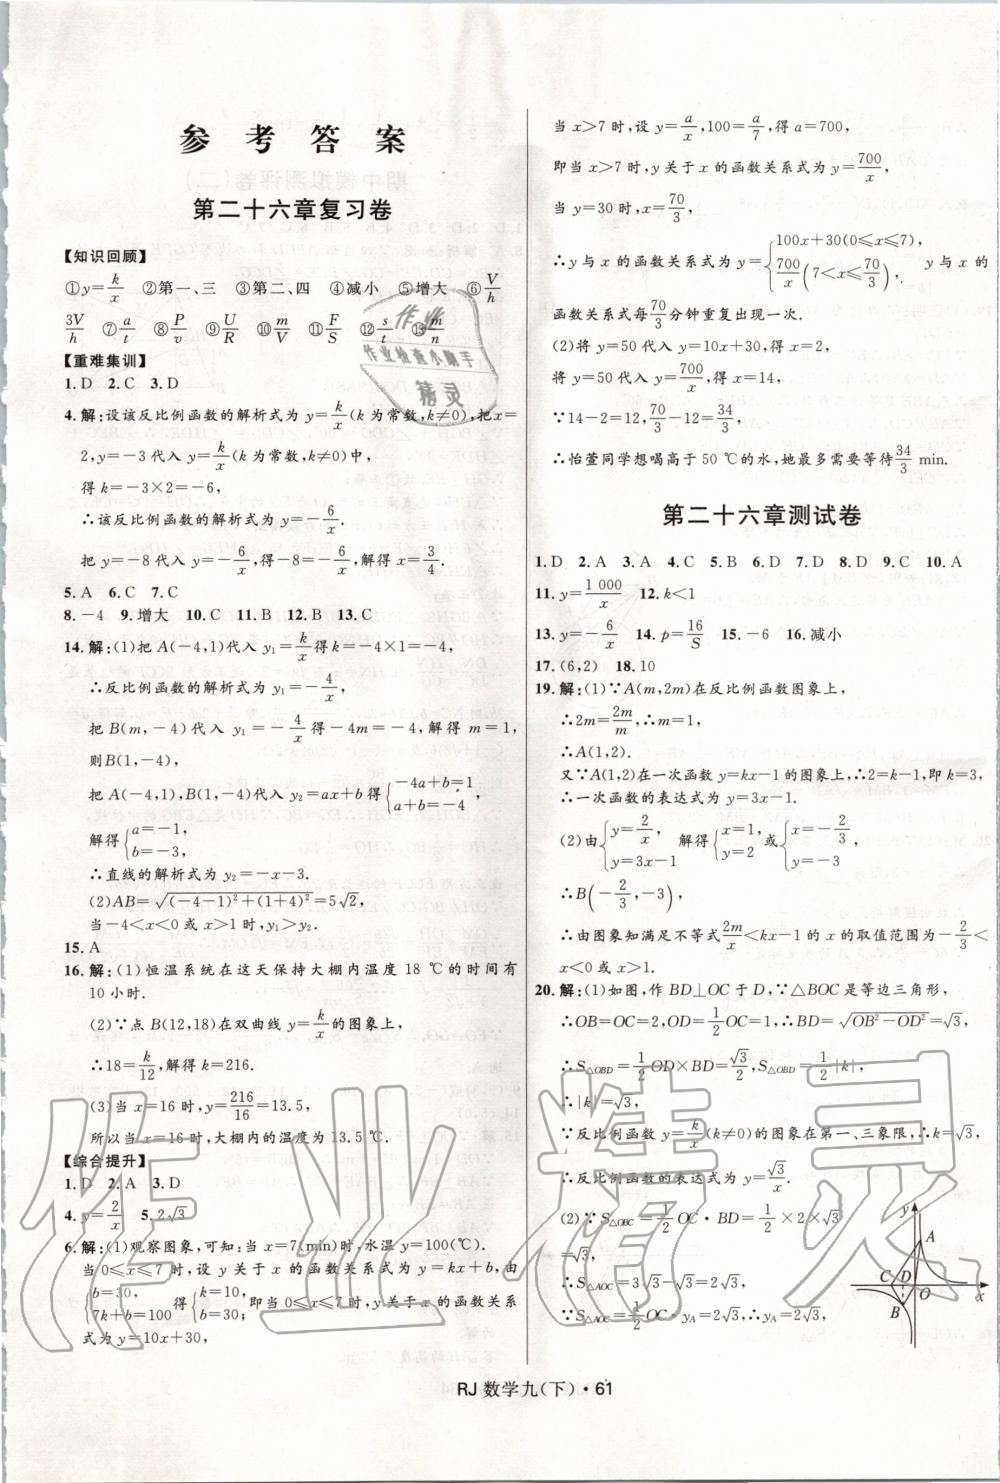 参考答案
第二十六章复习卷
【知识回顾】
①y=k/x ②第一、三 ③第二、四 ④减小 ⑤增大 ⑥V/h
3V/h ⑦a/t ⑧P/v ⑨U/R ⑩m/V ⑪F/S ⑫s/t ⑬m/n
【重难集训】
1.D 2.C 3.D
4.解:设该反比例函数的解析式为 y=k/x(k 为常数,k≠0),把x=
2,y=-3代入 y=k/x(k为常数,k≠0)中,
得 k=-3×2=-6,
∴该反比例函数的解析式为 y=-6/x.
把 y=-8代入 y=-6/x,得-8=-6/x,解得 x=3/4.
5.A 6.C 7.C
8.-4 9.增大 10.C 11.B 12.B 13.C
14.解:(1)把 A(-4,1)代入 y₁=k/x得 k=-4×1=-4,
∴反比例函数的解析式为 y₁=-4/x,
把 B(m,-4)代入 y₁=-4/x得-4m=-4,解得 m=1,
则B(1,-4),
把 A(-4,1),B(1,-4)代入 y₂=ax+b得{-4a+b=1 a+b=-4,
解得{a=-1, b=-3,
∴直线的解析式为 y₂=-x-3.
(2)AB=√((-4-1)²+(1+4)²)=5√2,
当-4<x<0或 x>1时,y₁>y₂.
15.A
16.解:(1)恒温系统在这天保持大棚内温度 18 ℃的时间有
10小时.
(2)∵点 B(12,18)在双曲线 y=k/x的图象上,
∴18=k/12,解得 k=216.
(3)当 x=16时,y=216/16=13.5,
所以当 x=16时,大棚内的温度为 13.5 ℃.
【综合提升】
1.D 2.A 3.D
4.y=2/x 5.2√3
6.解:(1)观察图象,可知:当 x=7(min)时,水温 y=100(℃).
当 0≤x≤7时,设 y关于 x的函数关系式为 y=kx+b,由
{b=30, 7k+b=100 得 {k=10, b=30; 即当 0≤x≤7时,y关于 x的函数关系
式为 y=10x+30,
当 x>7时,设 y=a/x,100=a/7,得 a=700,
即当 x>7时,y关于 x的函数关系式为 y=700/x,
当 y=30时,x=70/3,
∴y与 x的函数关系式为 y={100x+30(0≤x≤7), 700/x(7<x≤70/3), y与 x的
函数关系式每70/3分钟重复出现一次.
(2)将 y=50代入 y=10x+30,得 x=2,
将 y=50代入 y=700/x,得 x=14,
∵14-2=12,70/3-12=34/3,
∴怡萱同学想喝高于 50 ℃的水,她最多需要等待34/3 min.
第二十六章测试卷
1.D 2.A 3.A 4.C 5.B 6.D 7.D 8.D 9.C 10.A
11.y=1 000/x 12.k<1
13.y=-6/x 14.p=16/S 15.-6 16.减小
17.(6,2) 18.10
19.解:(1)∵A(m,2m)在反比例函数图象上,
∴2m=2m/m,∴m=1,
∴A(1,2).
又∵A(1,2)在一次函数 y=kx-1的图象上,∴2=k-1,即k=3,
∴一次函数的表达式为 y=3x-1.
(2)由{y=2/x, y=3x-1 解得{x=1, y=2 或{x=-2/3, y=-3
∴B(-2/3,-3),
∴由图象知满足不等式2m/x<kx-1的 x的取值范围为-2/3<
x<0或 x>1.
20.解:(1)如图,作 BD⊥OC于 D,∵△BOC是等边三角形,
∴OB=OC=2,OD=1/2OC=1,∴BD=√(OB²-OD²)=√3,
∴S△OBD=1/2OD×BD=√3/2,S△OBD=1/2|k|,
∴|k|=√3,
∵反比例函数 y=k/x(k≠0)的图象在第一、三象限,∴k=√3,
∴反比例函数的表达式为 y=√3/x.
(2)∵S△OBC=1/2OC·BD=1/2×2×√3
=√3,
∴S△AOC=3√3-√3=2√3,
∵S△AOC=1/2OC·yA=2√3,∴yA=2√3,
y
A
C D
O
x
B
RJ 数学九(下)·61
作业
作业检查小助手
精灵
作业精灵